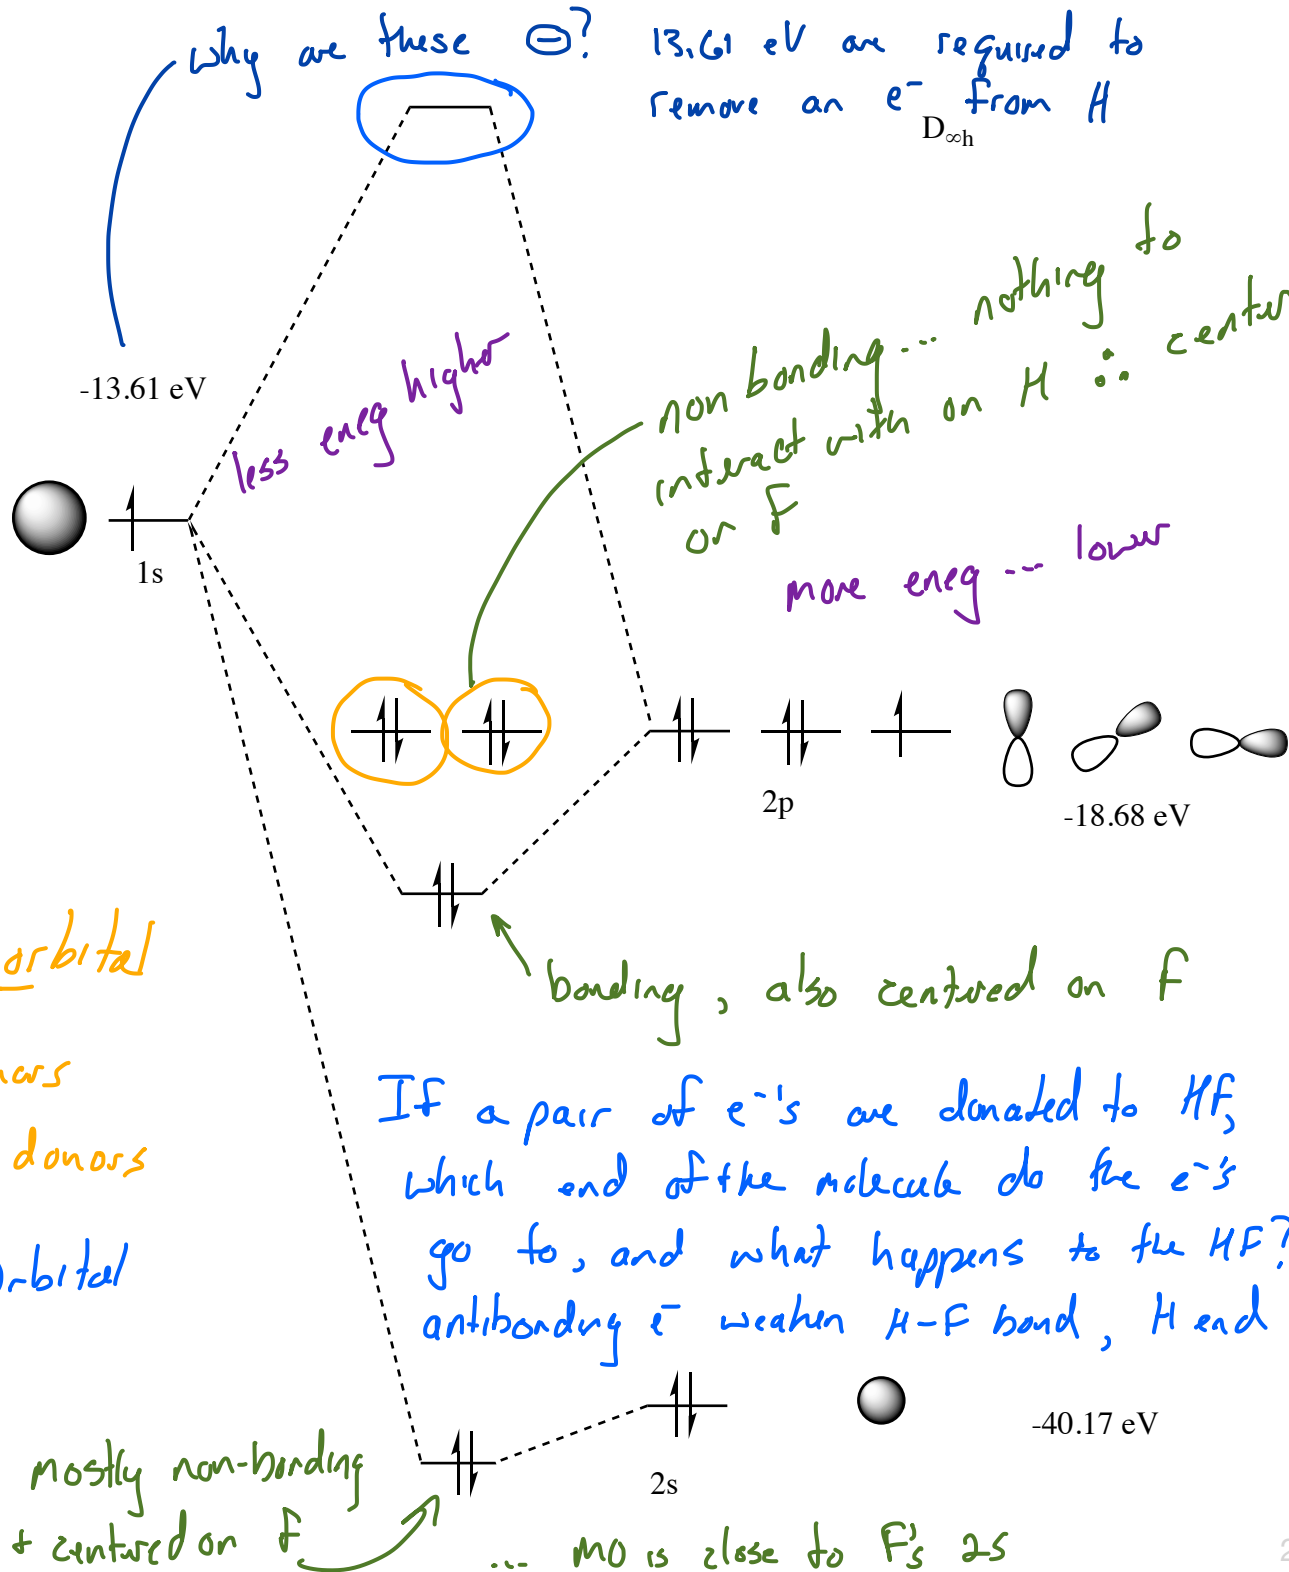 why are these ⊖? 13.61 eV are required to
remove an e⁻ from H
D∞h
-13.61 eV
less eneg higher
non bonding... nothing to
interact with on H ∴ center
on F
more eneg ... lower
1s
2p
-18.68 eV
orbital
bonding, also centured on F
donors
orbital
If a pair of e⁻'s are donated to HF,
which end of the molecule do the e⁻'s
go to, and what happens to the HF?
antibonding e⁻ weaken H-F bond, H end
-40.17 eV
2s
mostly non-bonding
+ centured on F
... MO is close to F's 2s
2